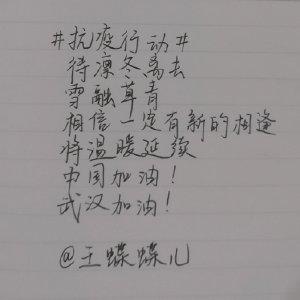 #抗疫行动#
待凛冬离去
雪融草青
相信一定有新的相逢
将温暖延续
中国加油！
武汉加油！
@王蝶蝶儿